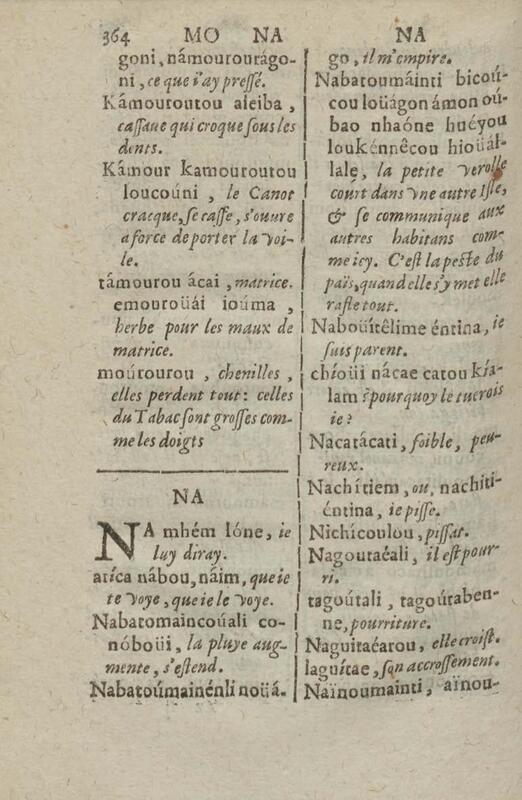 364 MO NA
goni, námourourágo-
ni, ce que i'ay pressé.
Kámouroutou aleiba,
cassaue qui croque sous les
dents.
Kámour kamouroutou
loucoúni, le Canot
cracque, se casse, s'ouure
a force de porter la voi-
le.
támourou ácai, matrice.
emouroüái ioúma,
herbe pour les maux de
matrice.
moútourou, chenilles,
elles perdent tout: celles
du Tabac sont grosses com-
me les doigts
NA
NA mhém lóne, ie
luy diray.
atíca nábou, náim, que ie
te voye, que ie le voye.
Nabatomaincoúali co-
nóboüi, la pluye aug-
mente, s'estend.
Nabatoúmainénli noüá-
NA
go, il m'empire.
Nabatoumáinti bicoú-
cou loüágon ámon oú-
bao nhaóne huéyou
loukénnêcou hioüál-
lale, la petite verolle
court dans vne autre Isle,
& se communique aux
autres habitans com-
me icy. C'est la peste du
païs, quand elle s'y met elle
rafle tout.
Naboüítêlime éntina, ie
suis parent.
chíoüi nácae catou kía-
lam pourquoy le tuerois
ie?
Nacatácati, foible, peu-
reux.
Nachítiem, ou, nachiti-
éntina, ie pisse.
Nichícoulou, pissat.
Nagoutaéali, il est pour-
ri.
tagoútali, tagoútaben-
ne, pourriture.
Naguitaéarou, elle croist.
laguítae, son accrossement.
Naïnoumainti, aïnou-